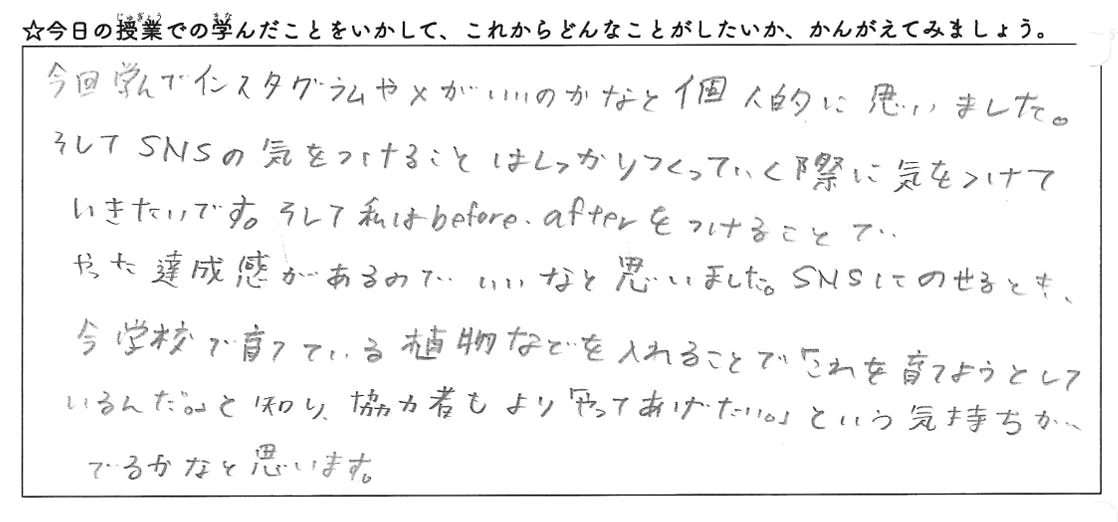 ☆今日の授業での学んだことをいかして、これからどんなことがしたいか、かんがえてみましょう。
今回学んでインスタグラムやXがいいのかなと個人的に思いました。
そしてSNSの気をつけることはしっかりつくっていく際に気をつけて
いきたいです。そして私はbefore.afterをつけることで
やった達成感があるのでいいなと思いました。SNSにのせるとき、
今学校で育てている植物などを入れることで「これを育てようとして
いるんだ。」と知り、協力者もより「やってあげたい。」という気持ちが
でるかなと思います。